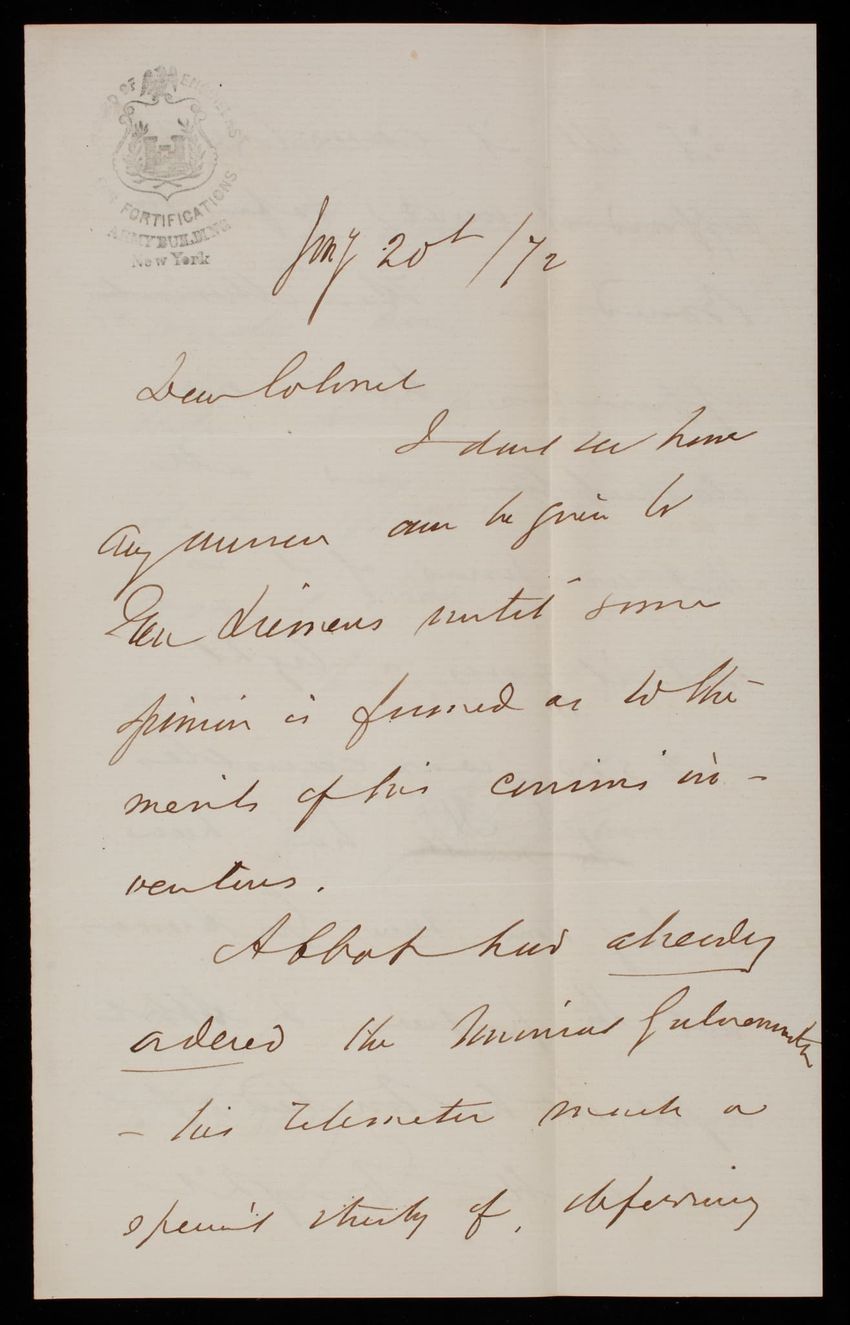 BOARD OF ENGINEERS
FOR FORTIFICATIONS
ARMY BUILDING
New York
Jany 20th /72
Dear Colonel
I dont see how
any answer can be given to
Siemens until some
opinion is formed as to the
merits of his various in-
ventions.
Abbot has already
ordered the Universal Galvanometer
- his Telemeter
special study of, deferring